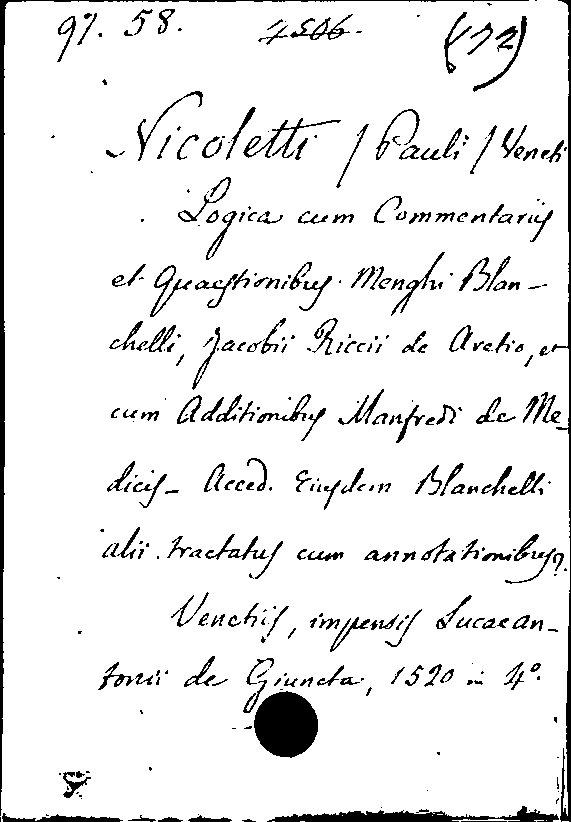 97. 58. 4506. (172)
Nicoletti / Pauli / Veneti
Logica cum Commentariis
et Quaestionibus Menghi Blan-
chelli, Jacobii Riccii de Aretio, et
cum Additionibus Manfredi de Me-
dicis_ Acced. Eiusdem Blanchelli
alii tractatus cum annotationibus.
Venetiis, impensis Lucaean-
tonii de Giuncta, 1520 in 4°.